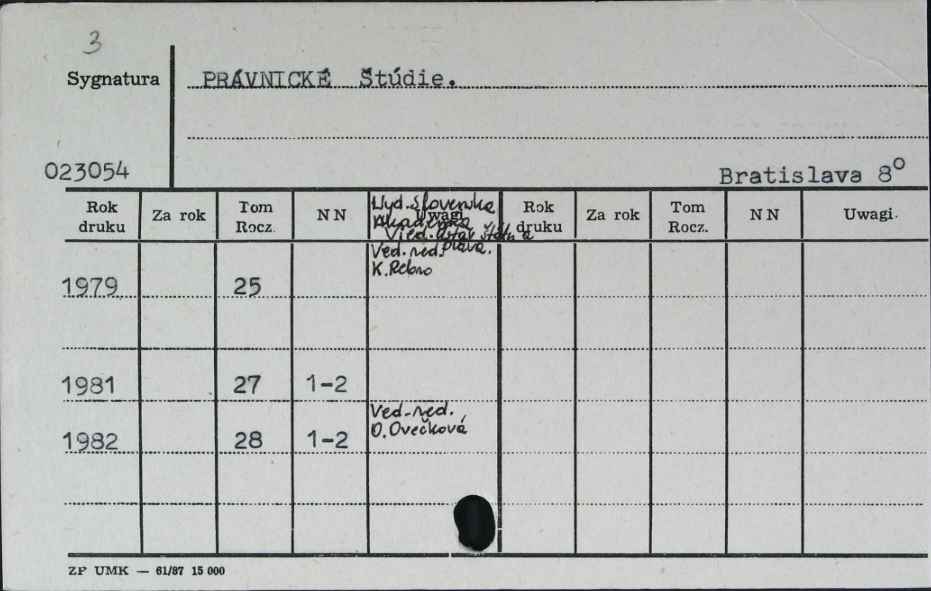 3
Sygnatura PRÁVNICKÉ Štúdie.
023054 Bratislava 8°
Rok druku Za rok Tom Rocz. N N Uwagi Rok druku Za rok Tom Rocz. N N Uwagi.
Wyd. Slovenska
Akadémia
Vied. Ústav štátu a
práva.
Ved. red.
K. Rebro
1979 25
1981 27 1-2
Ved. red.
O. Ovečková
1982 28 1-2
ZP UMK — 61/87 15 000